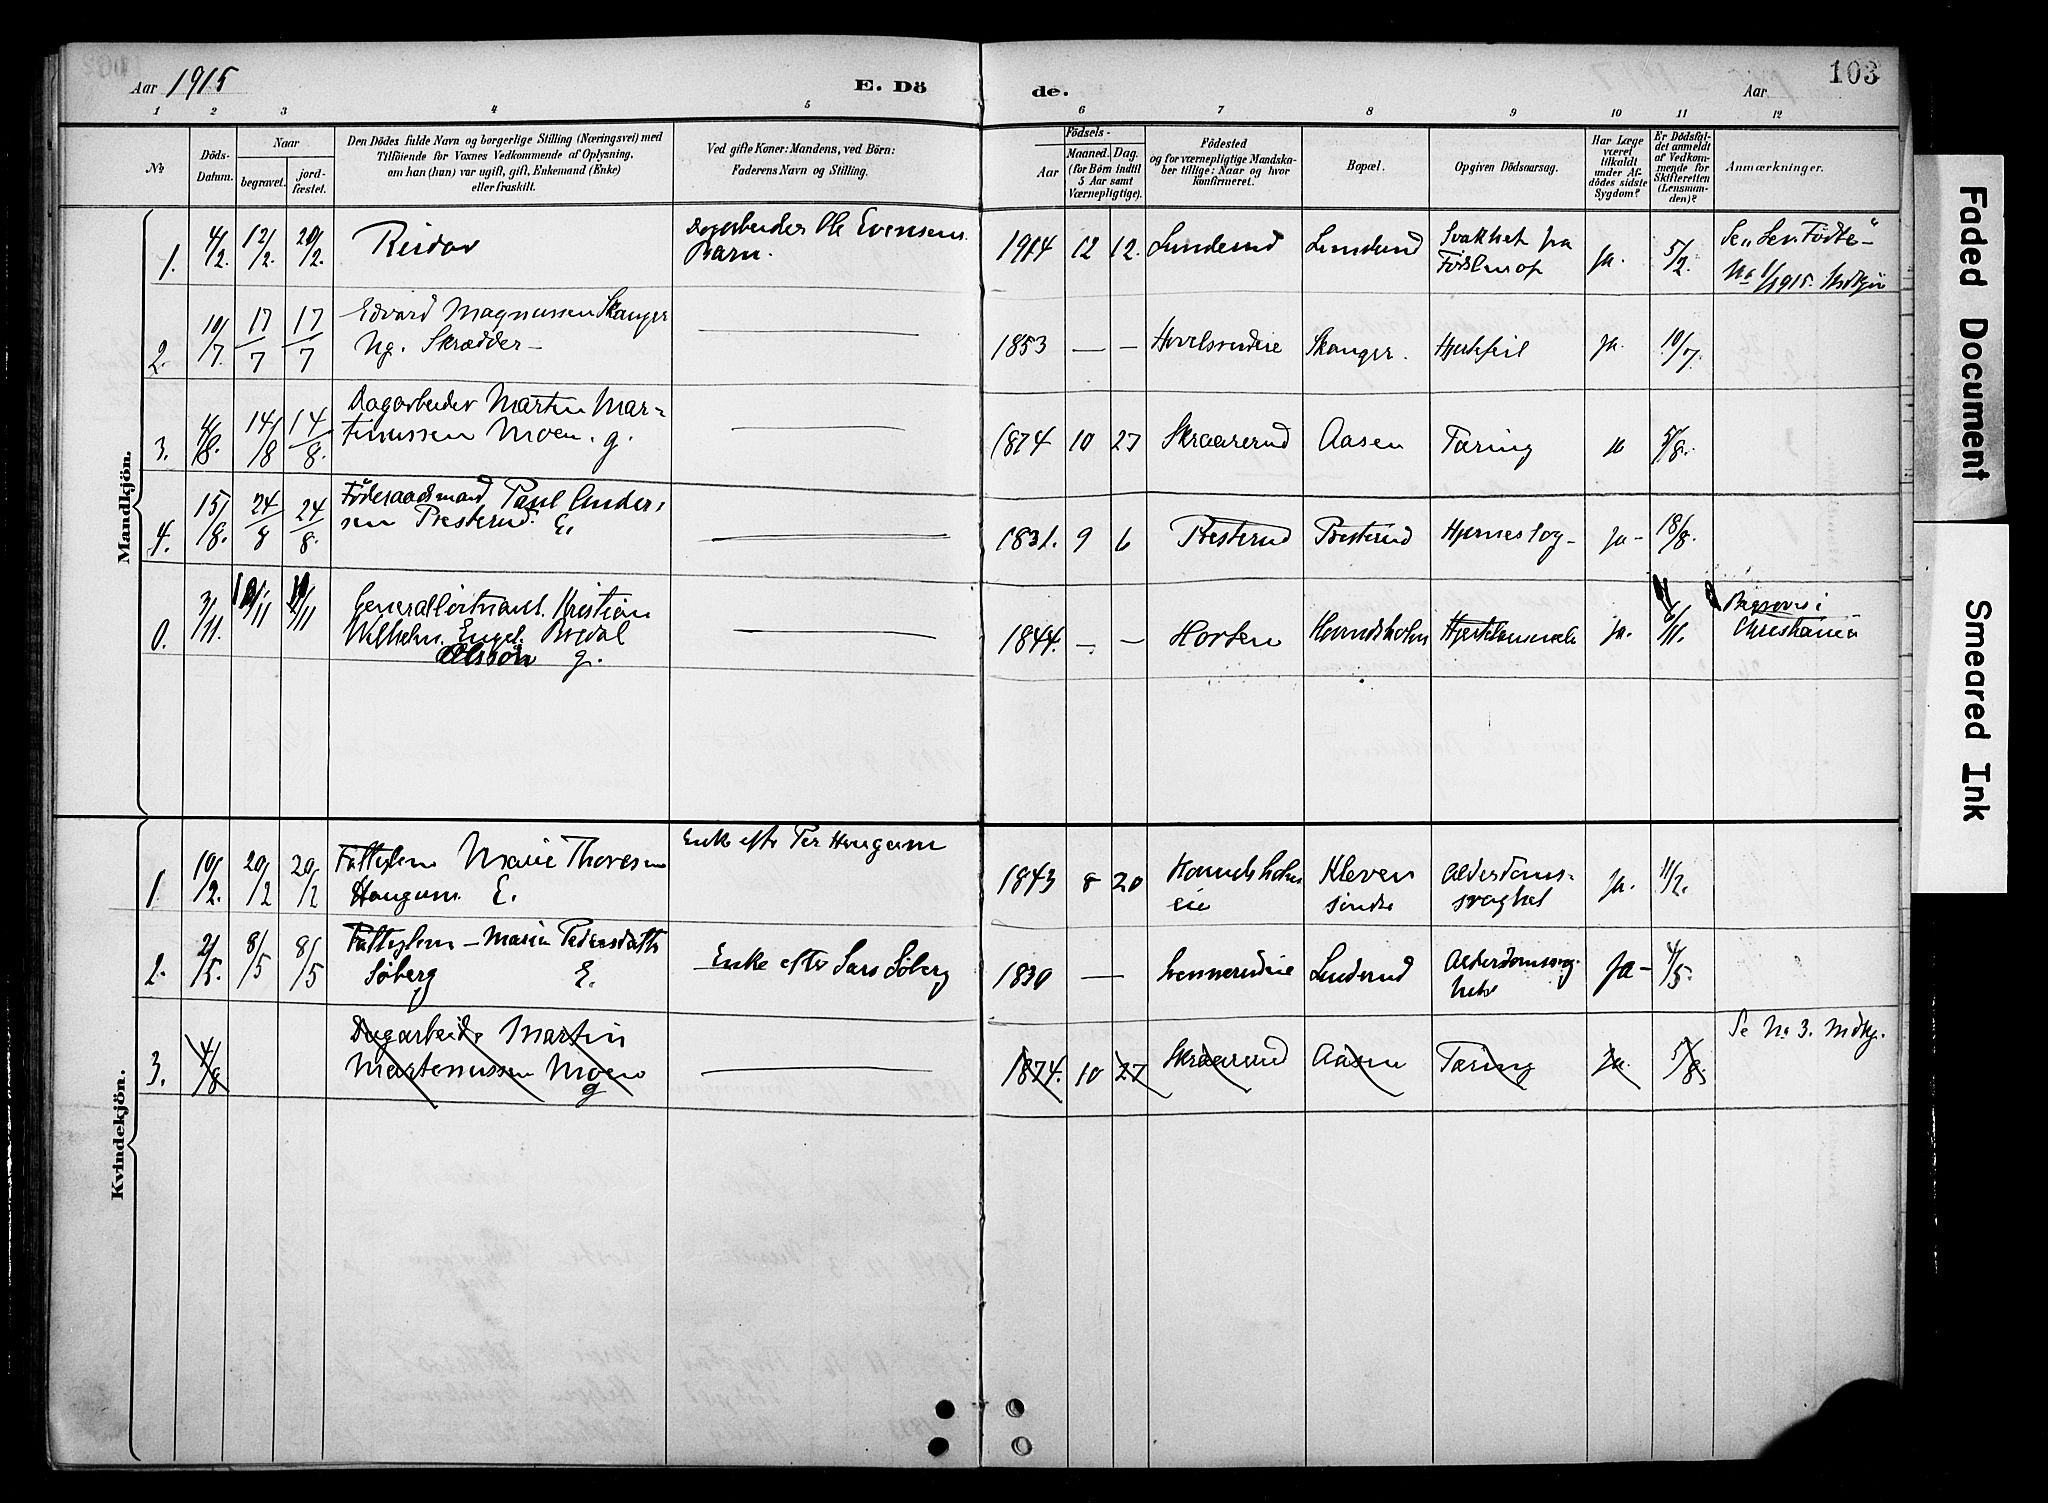 Aar 1915
E. Dö
de.
Aar
103
1 2 3 4 5 6 7 8 9 10 11 12
No
Döds-
Datum.
Naar
begravet.
jord-
fæstet.
Den Dödes fulde Navn og borgerlige Stilling (Næringsvei) med
Tilföiende for Voxnes Vedkommende af Oplysning,
om han (hun) var ugift, gift, Enkemand (Enke)
eller fraskilt.
Ved gifte Koner: Mandens, ved Börn:
Faderens Navn og Stilling.
Födsels-
Aar
Maaned.
Dag.
(for Börn indtil
5 Aar samt
Værnepligtige).
Födested
og for værnepligtige Mandska-
ber tillige: Naar og hvor
konfirmeret.
Bopæl.
Opgiven Dödsaarsag.
Har Læge
været
tilkaldt
under Af-
dödes sidste
Sygdom?
Er Dödsfal-
det anmeldt
af Vedkom-
mende for
Skifteretten
(Lensman-
den)?
Anmærkninger.
Mandkjön.
1. 4/2. 12/2. 20/2. Reidar
Dagarbeider Ole Evensens
Barn.
1914 12 12. Lunderud Lunderud
Svakhet fra
Födslen af
Ja. 5/2.
Se "Lev. Födte"
No 1/1915. Mdkjön
2. 10/7. 17/7 17/7
Edvard Magnussen Skanger
Ug. Skrædder
1853 — — Skanger. Hjertefeil Ja. 10/7.
3. 4/8. 14/8 14/8.
Dagarbeider Martin Mar-
tinussen Moen. g.
1874 10 27 Skraarerud Aasen Tæring 5/8.
4. 15/8. 24/8 24/8.
Föderaadsmand Paul Ander-
sen Presterud. E.
1831. 9 6 Presterud Presterud Hjerneslag Ja 18/8.
0. 3/11.
Generalløitnant Kristian
Wilhelm Engel Bredal
Olssøn g.
1844. — — Horten Ja. 6/11.
Begraves i
Christiania
Kvindekjön.
1. 10/2. 20/2 20/2
Fattiglem Marie Thoresen
Haugum E.
Enke efter Per Haugum
1843 8 20
eie
Kleven
söndre
Alderdoms-
svaghet
Ja. 11/2.
2. 2/5. 8/5 8/5
Fattiglem Marie Pedersdatter
Söberg E.
Enke efter Lars Söberg
1830 — Lunderud
Alderdomssvag-
het
Ja 4/5.
3. 4/8
Dagarbeider Martin
Martinussen Moen
g
1874. 10 27 Skraarerud Aasen Tæring Ja. 5/8.
Se No 3. Mdkj.
Faded Document
Smeared Ink